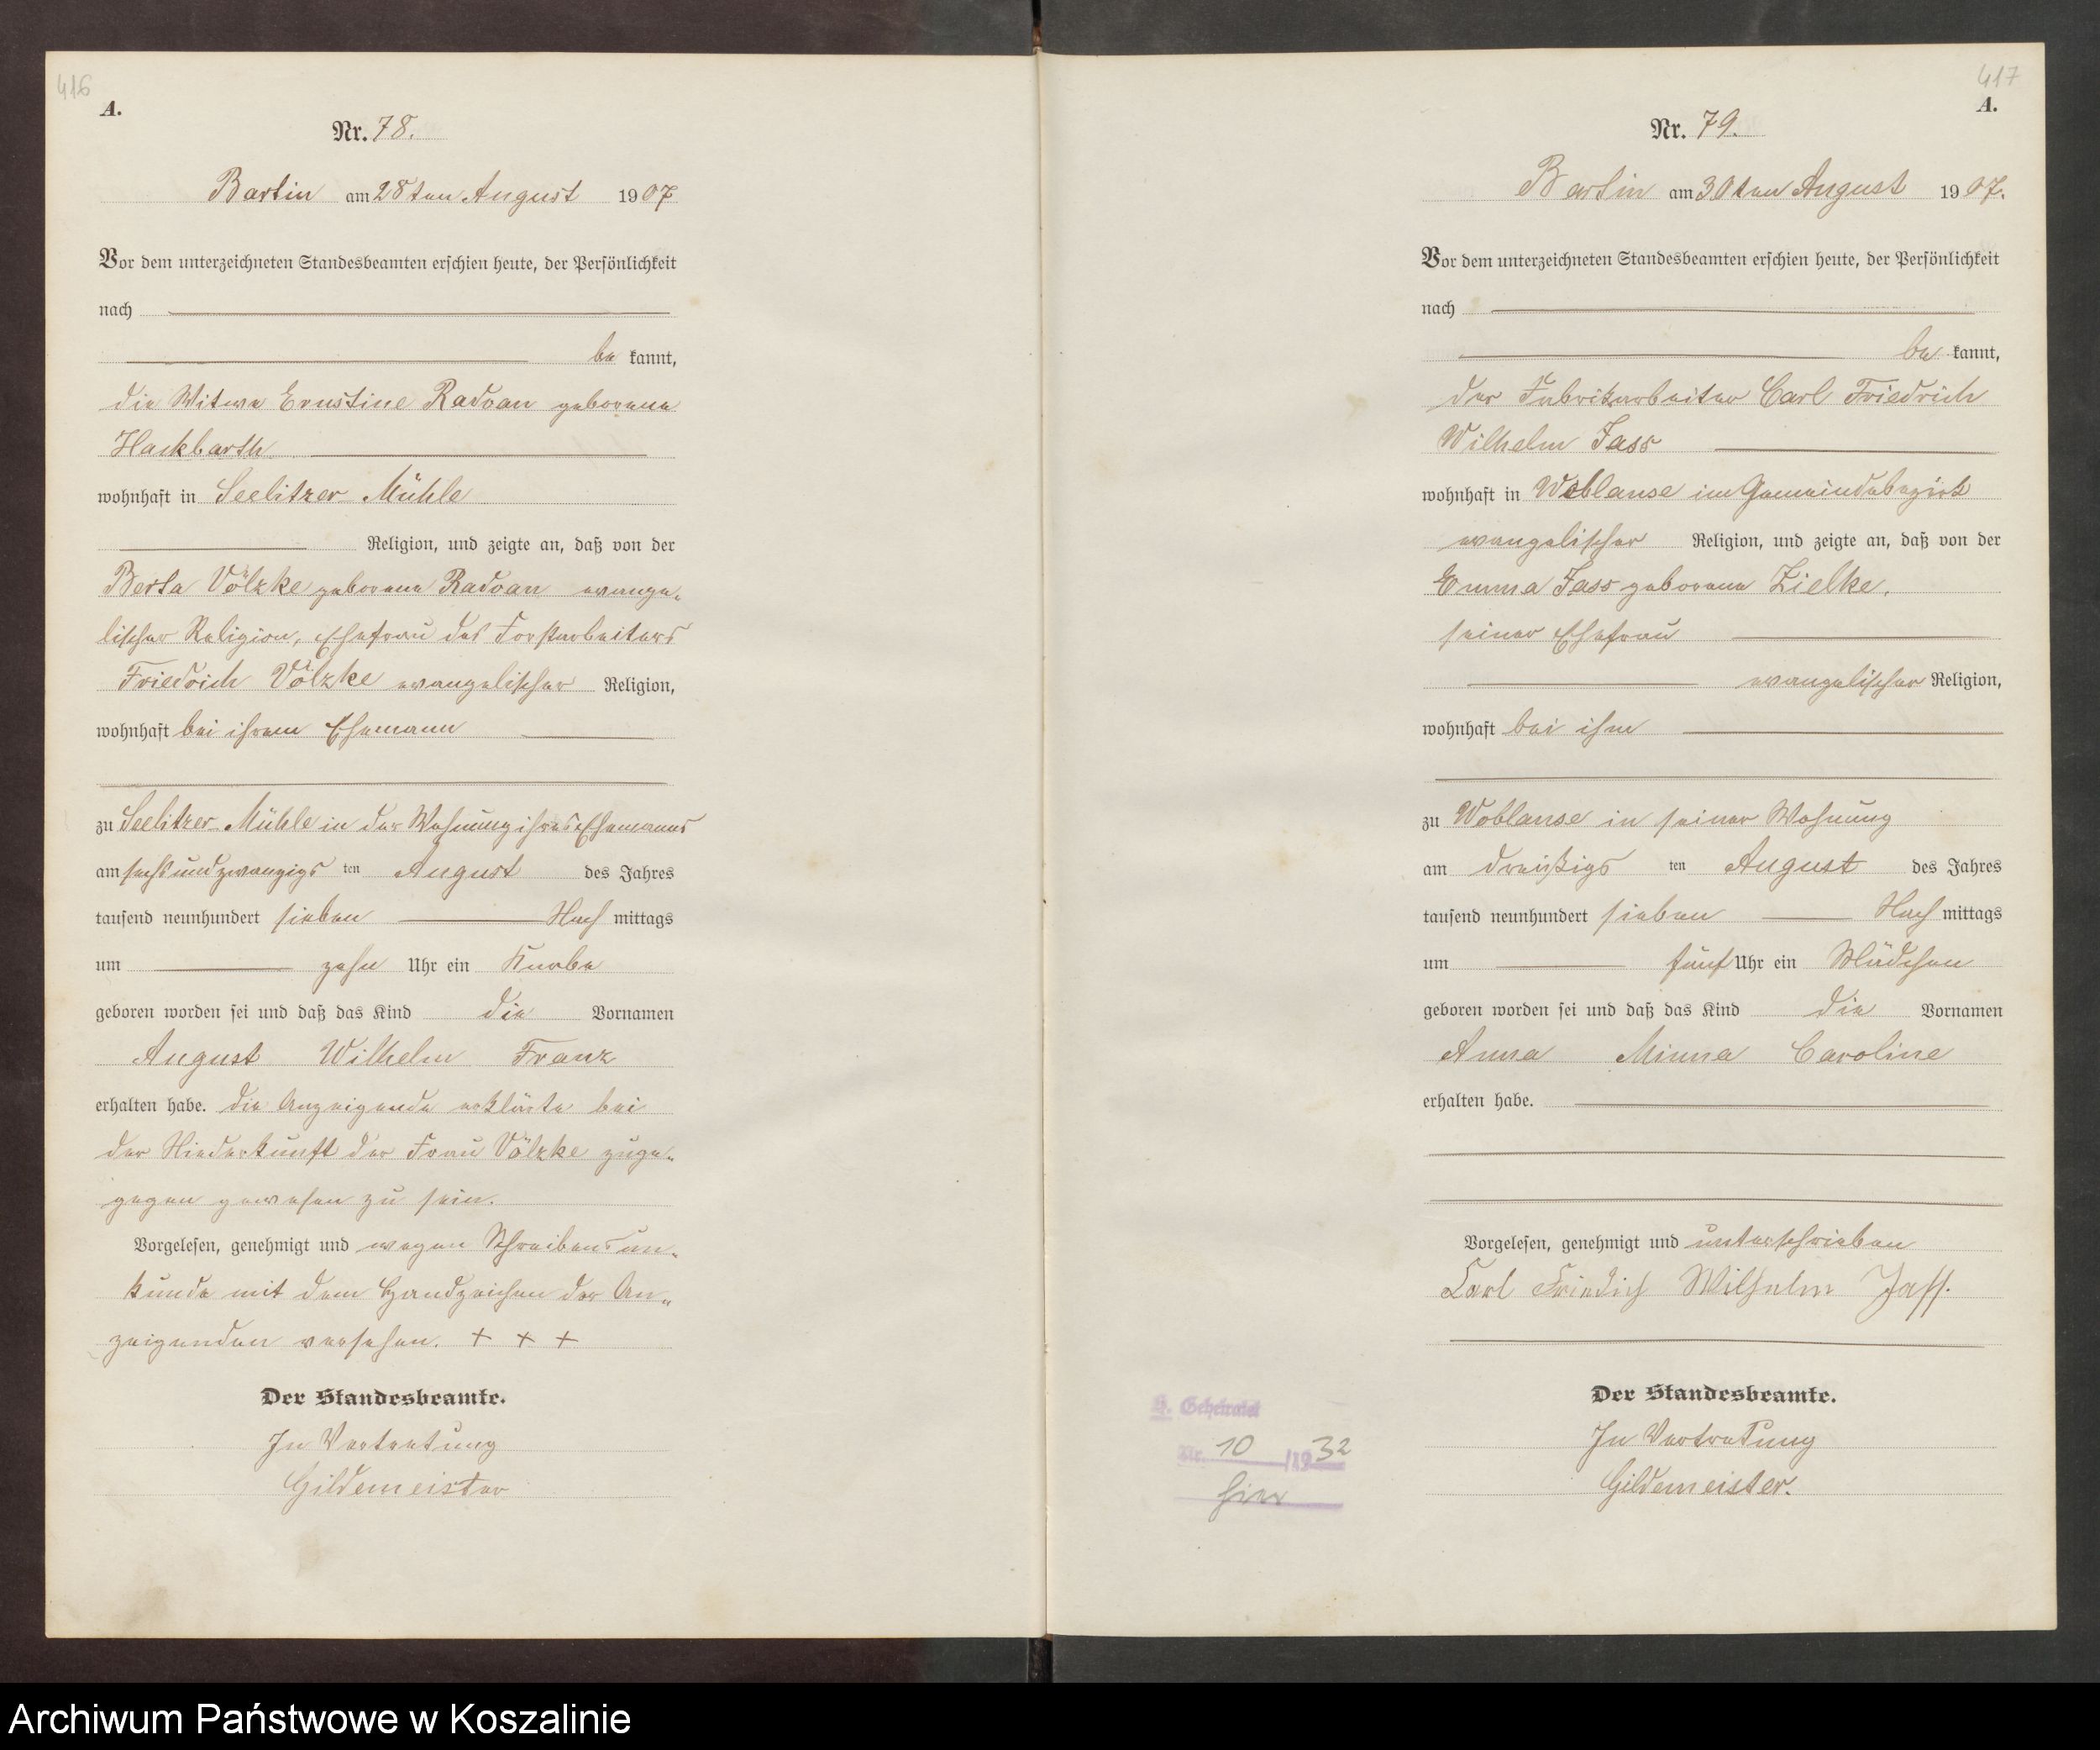 416
A.
Nr. 78.
Bartin am 28ten August 1907
Vor dem unterzeichneten Standesbeamten erschien heute, der Persönlichkeit
nach
be kannt,
die Witwe Ernstine Radoan geborene
Hackbarth
wohnhaft in Seelitzer Mühle
Religion, und zeigte an, daß von der
Berta Völzke geborene Radoan evange-
lischer Religion, Ehefrau des Forstarbeiters
Friedrich Völzke evangelischer Religion,
wohnhaft bei ihrem Ehemann
zu Seelitzer Mühle in der Wohnung ihres Ehemannes
am sechsundzwanzigs ten August des Jahres
tausend neunhundert sieben Nach mittags
um zehn Uhr ein Knabe
geboren worden sei und daß das Kind die Vornamen
August Wilhelm Franz
erhalten habe. Die Anzeigende erklärte bei
der Niederkunft der Frau Völzke zuge-
gegen gewesen zu sein.
Vorgelesen, genehmigt und wegen Schreibensun-
kunde mit dem Handzeichen der An-
zeigenden versehen. + + +
Der Standesbeamte.
In Vertretung
Gildemeister
417
A.
Nr. 79.
Bartin am 30ten August 1907.
Vor dem unterzeichneten Standesbeamten erschien heute, der Persönlichkeit
nach
be kannt,
der Fabrikarbeiter Carl Friedrich
Wilhelm Jass
wohnhaft in Woblanse im Gemeindebezirk
evangelischer Religion, und zeigte an, daß von der
Emma Jass geborene Zielke,
seiner Ehefrau
evangelischer Religion,
wohnhaft bei ihm
zu Woblanse in seiner Wohnung
am dreißigs ten August des Jahres
tausend neunhundert sieben Nach mittags
um fünf Uhr ein Mädchen
geboren worden sei und daß das Kind die Vornamen
Anna Minna Caroline
erhalten habe.
Vorgelesen, genehmigt und unterschrieben
Carl Friedrich Wilhelm Jass.
Der Standesbeamte.
In Vertretung
Gildemeister.
Geheiratet
Nr. 10 /1932
hier
Archiwum Państwowe w Koszalinie